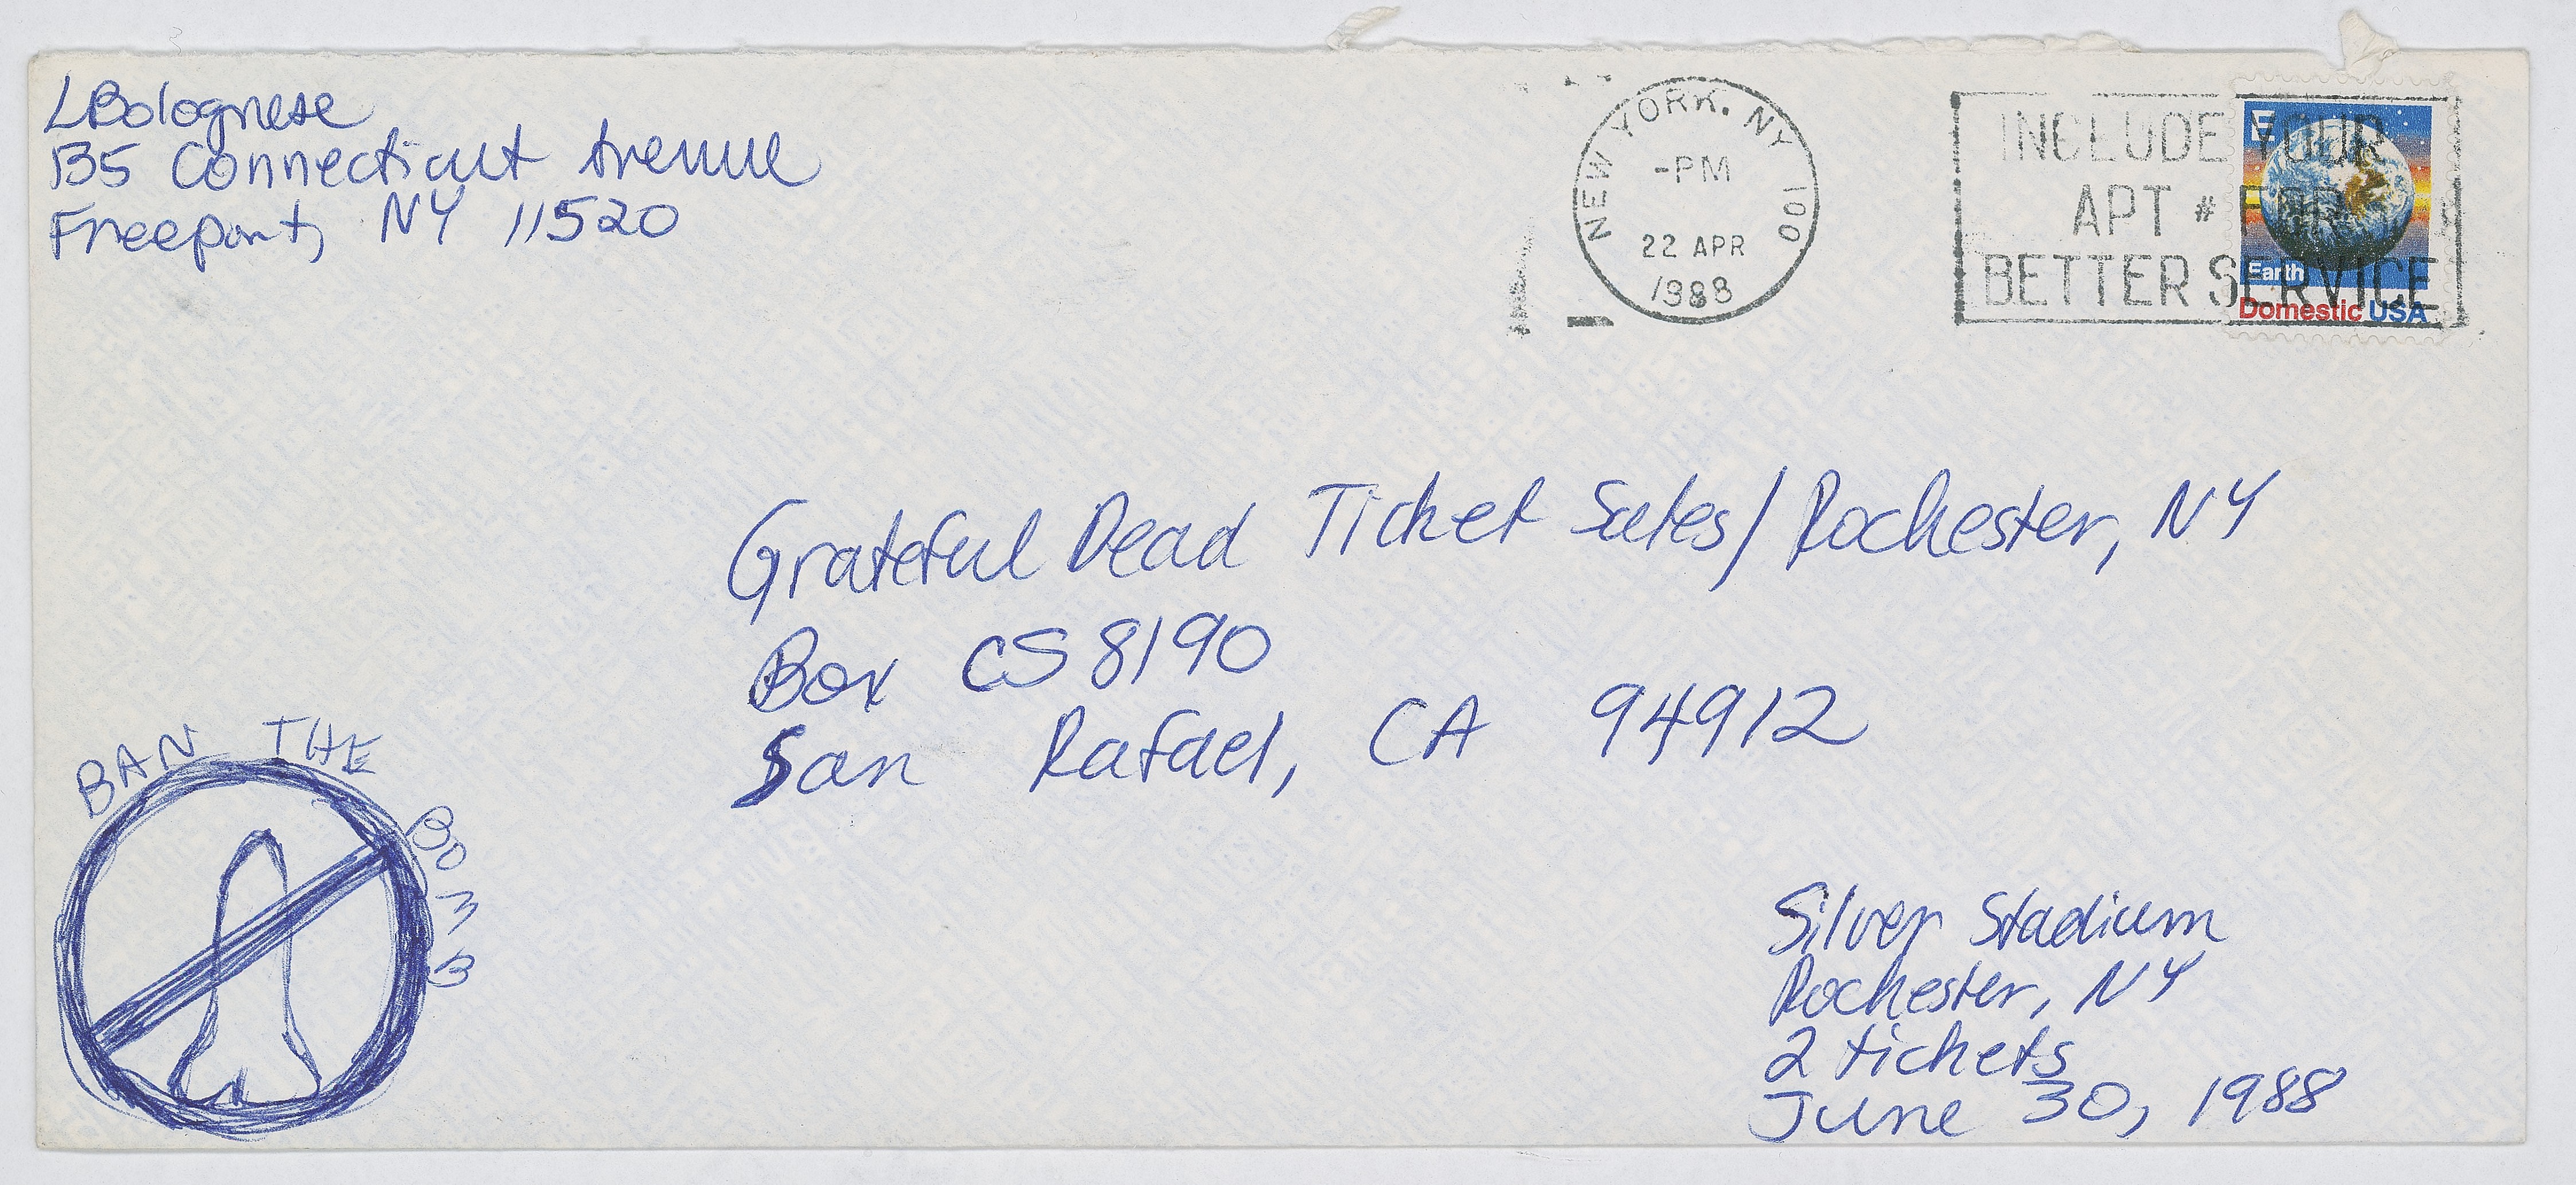 LBolognese
135 Connecticut Avenue
Freeport, NY 11520
NEW YORK, NY 100
-PM
22 APR
1988
INCLUDE YOUR
APT # FOR
BETTER SERVICE
E
Earth
Domestic USA
Grateful Dead Ticket Sales/Rochester, NY
Box CS 8190
San Rafael, CA 94912
BAN THE BOMB
Silver Stadium
Rochester, NY
2 tickets
June 30, 1988